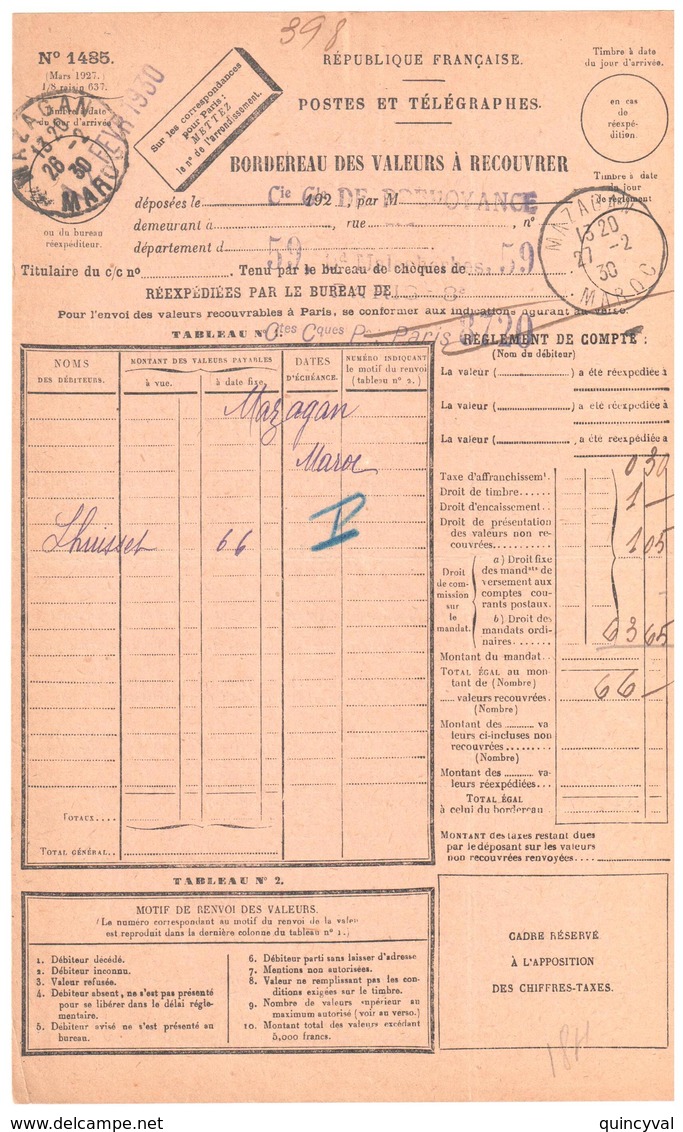 398
Nº 1485.
(Mars 1927.)
1/8 raisin 637.
Timbre à date
du jour d'arrivée
MAZAGAN
13 20
26 -2
30
MAROC
FEVR 1930
ou du bureau
réexpéditeur.
Sur les correspondances
pour Paris :
METTEZ
le nº de l'arrondissement.
RÉPUBLIQUE FRANÇAISE.
POSTES ET TÉLÉGRAPHES.
BORDEREAU DES VALEURS À RECOUVRER
Timbre à date
du jour d'arrivée.
en cas
de
réexpé-
dition.
Timbre à date
du jour
de règlement
MAZAGAN
13 20
27 -2
30
MAROC
Cie Gle DE PRÉVOYANCE
déposées le 192 par M
demeurant à , rue , nº
département d
59 Bd Malesherbes. 59
Titulaire du c/c nº Tenu par le bureau de chèques de
PARIS-8e
RÉEXPÉDIÉES PAR LE BUREAU DE
Pour l'envoi des valeurs recouvrables à Paris, se conformer aux indications figurant au verso.
Ctes Cques Px Paris 3720
TABLEAU Nº 1.
NOMS
DES DÉBITEURS.
MONTANT DES VALEURS PAYABLES
à vue.
à date fixe.
DATES
D'ÉCHÉANCE.
NUMÉRO INDIQUANT
le motif du renvoi
(tableau nº 2.)
Mazagan
Maroc
Lhuisset 66 V
TOTAUX....
TOTAL GÉNÉRAL..
RÈGLEMENT DE COMPTE :
(Nom du débiteur)
La valeur ( ) a été réexpédiée à
La valeur ( ) a été réexpédiée à
La valeur ( ), a été réexpédiée à
Taxe d'affranchissemt. 0 30
Droit de timbre.
Droit d'encaissement. 1 -
Droit de présentation
des valeurs non re-
couvrées 1 05
Droit
de com-
mission
sur
le
mandat.
a) Droit fixe
des mandats de
versement aux
comptes cou-
rants postaux. -
b) Droit des
mandats ordi-
naires 63 65
Montant du mandat...
TOTAL ÉGAL au mon-
tant de (Nombre) 66 -
valeurs recouvrées.
(Nombre)
Montant des va-
leurs ci-incluses non
recouvrées
(Nombre)
Montant des va-
leurs réexpédiées....
TOTAL ÉGAL
à celui du bordereau
MONTANT des taxes restant dues
par le déposant sur les valeurs
non recouvrées renvoyées
TABLEAU Nº 2.
MOTIF DE RENVOI DES VALEURS.
(Le numéro correspondant au motif du renvoi de la valeur
est reproduit dans la dernière colonne du tableau nº 1.)
1. Débiteur décédé.
2. Débiteur inconnu.
3. Valeur refusée.
4. Débiteur absent, ne s'est pas présenté
pour se libérer dans le délai régle-
mentaire.
5. Débiteur avisé ne s'est présenté au
bureau.
6. Débiteur parti sans laisser d'adresse
7. Mentions non autorisées.
8. Valeur ne remplissant pas les con-
ditions exigées sur le timbre.
9. Nombre de valeurs supérieur au
maximum autorisé (voir au verso.)
10. Montant total des valeurs excédant
5,000 francs.
CADRE RÉSERVÉ
À L'APPOSITION
DES CHIFFRES-TAXES.
quincyval